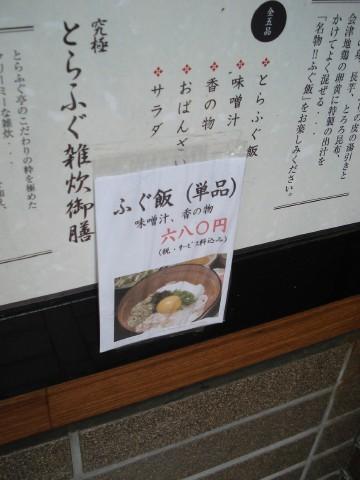 全五品
身、長芋、とろろ昆布、
会津地鶏の卵黄に特製の出汁を
かけてよく混ぜる...
『名物!!ふぐ飯』をお楽しみください。
とらふぐ飯
味噌汁
香の物
おばんざい
サラダ
究極
とらふぐ雑炊御膳
とらふぐ亭のこだわりの粋を極めた
ふぐ飯(単品)
味噌汁、香の物
六八〇円
(税・サービス料込み)